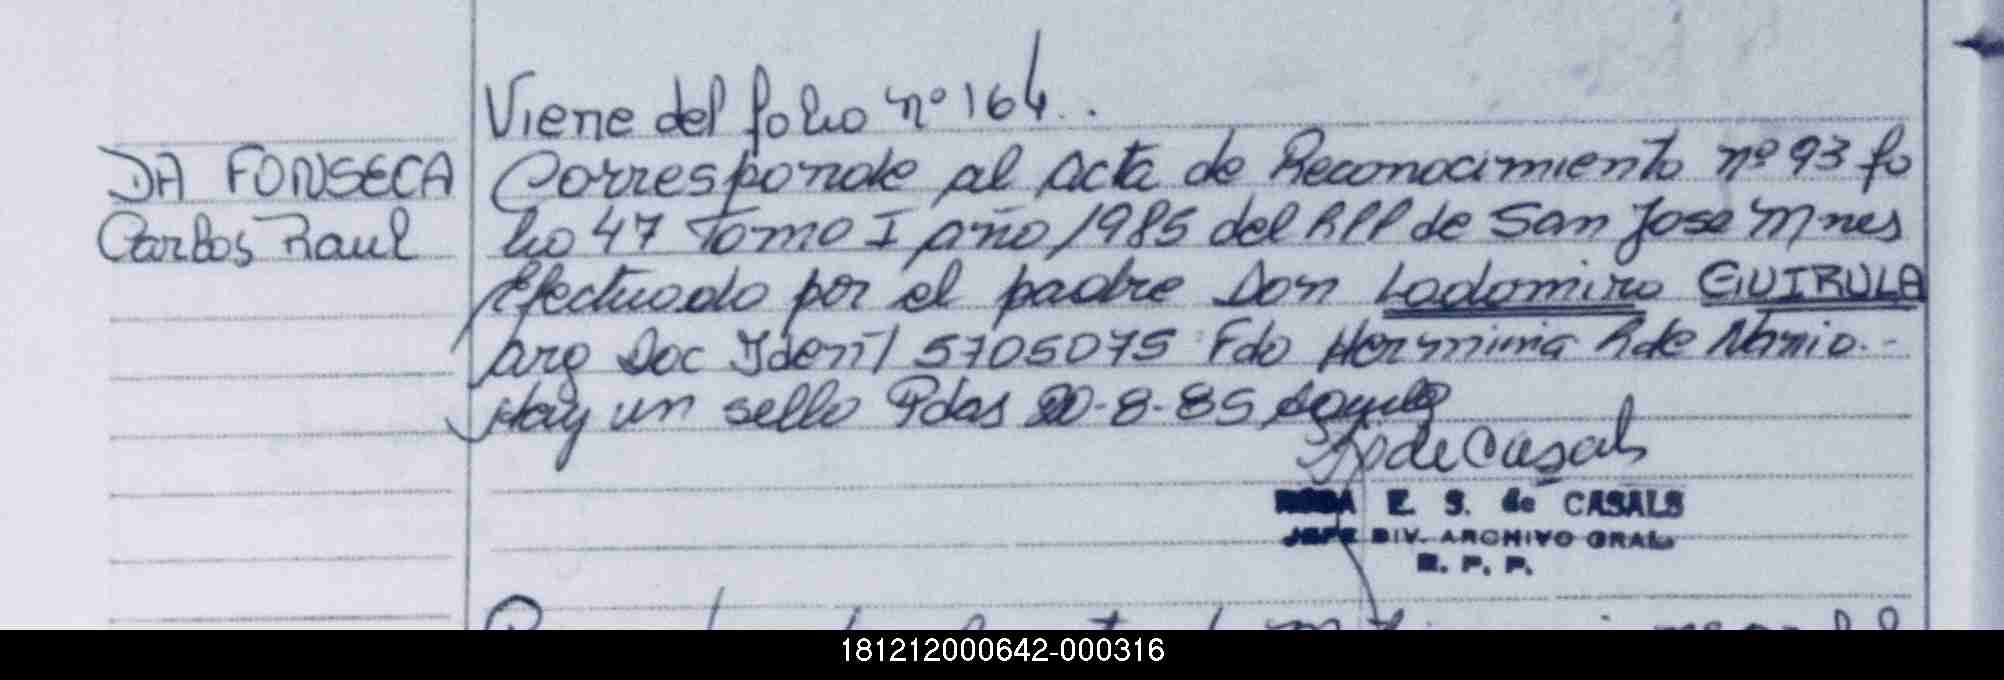 Viene del folio nº 164.
DA FONSECA
Carlos Raul
Corresponde al Acta de Reconocimiento nº 93 fo
lio 47 Tomo I año 1985 del RPP de San Jose Mnes
Efectuado por el padre Don Ladomiro GUIRULA
arg Doc Ident 5705075 Fdo Herminia R de
Hay un sello Pdas 20-8-85
de Casals
ROSA E. S. de CASALS
JEFE DIV. ARCHIVO GRAL.
R. P. P.
181212000642-000316